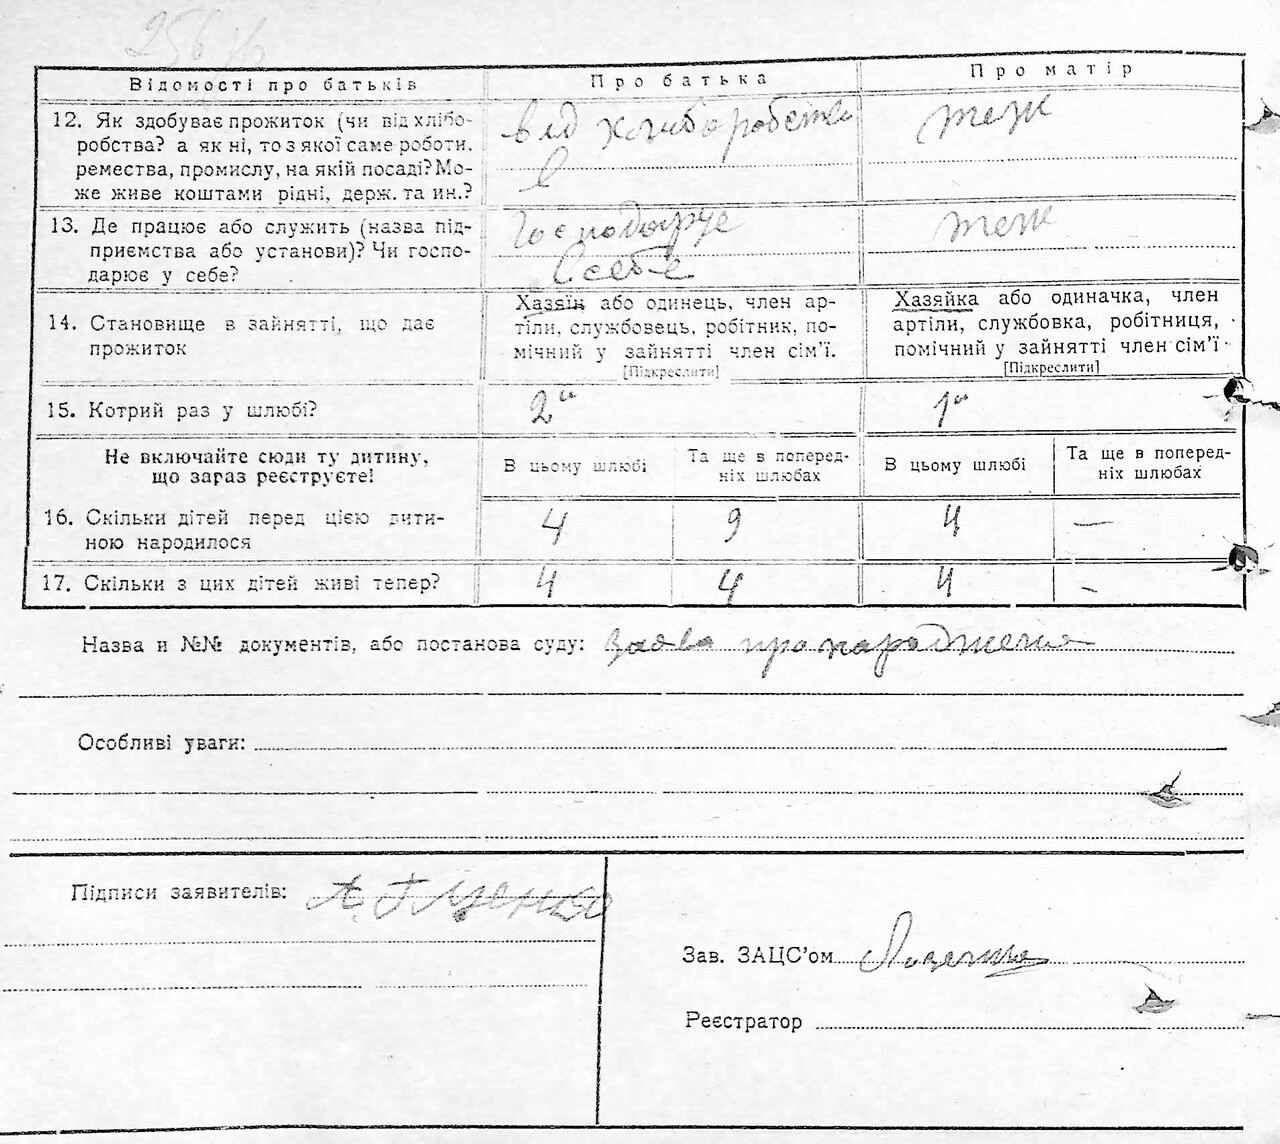 256
Відомості про батьків Про батька Про матір
12. Як здобуває прожиток (чи від хлібо- від хлиборобства теж
робства? а як ні, то з якої саме роботи,
ремества, промислу, на якій посаді? Мо-
же живе коштами рідні, держ. та ин.?
13. Де працює або служить (назва під- Господарує теж
приємства або установи)? Чи госпо- в себе
дарює у себе?
14. Становище в зайнятті, що дає прожиток
Хазяїн або одинець, член ар-
тіли, службовець, робітник, по-
мічний у зайнятті член сім'ї.
[Підкреслити]
Хазяйка або одиначка, член
артіли, службовка, робітниця,
помічний у зайнятті член сім'ї
[Підкреслити]
15. Котрий раз у шлюбі? 2й 1й
Не включайте сюди ту дитину,
що зараз реєструєте!
В цьому шлюбі Та ще в поперед-
ніх шлюбах В цьому шлюбі Та ще в поперед-
ніх шлюбах
16. Скільки дітей перед цією дити- 4 9 4 —
ною народилося
17. Скільки з цих дітей живі тепер? 4 4 4 -
Назва и №№ документів, або постанова суду: Заява про народження
Особливі уваги:
Підписи заявителів: А.
Зав. ЗАЦС'ом
Реєстратор